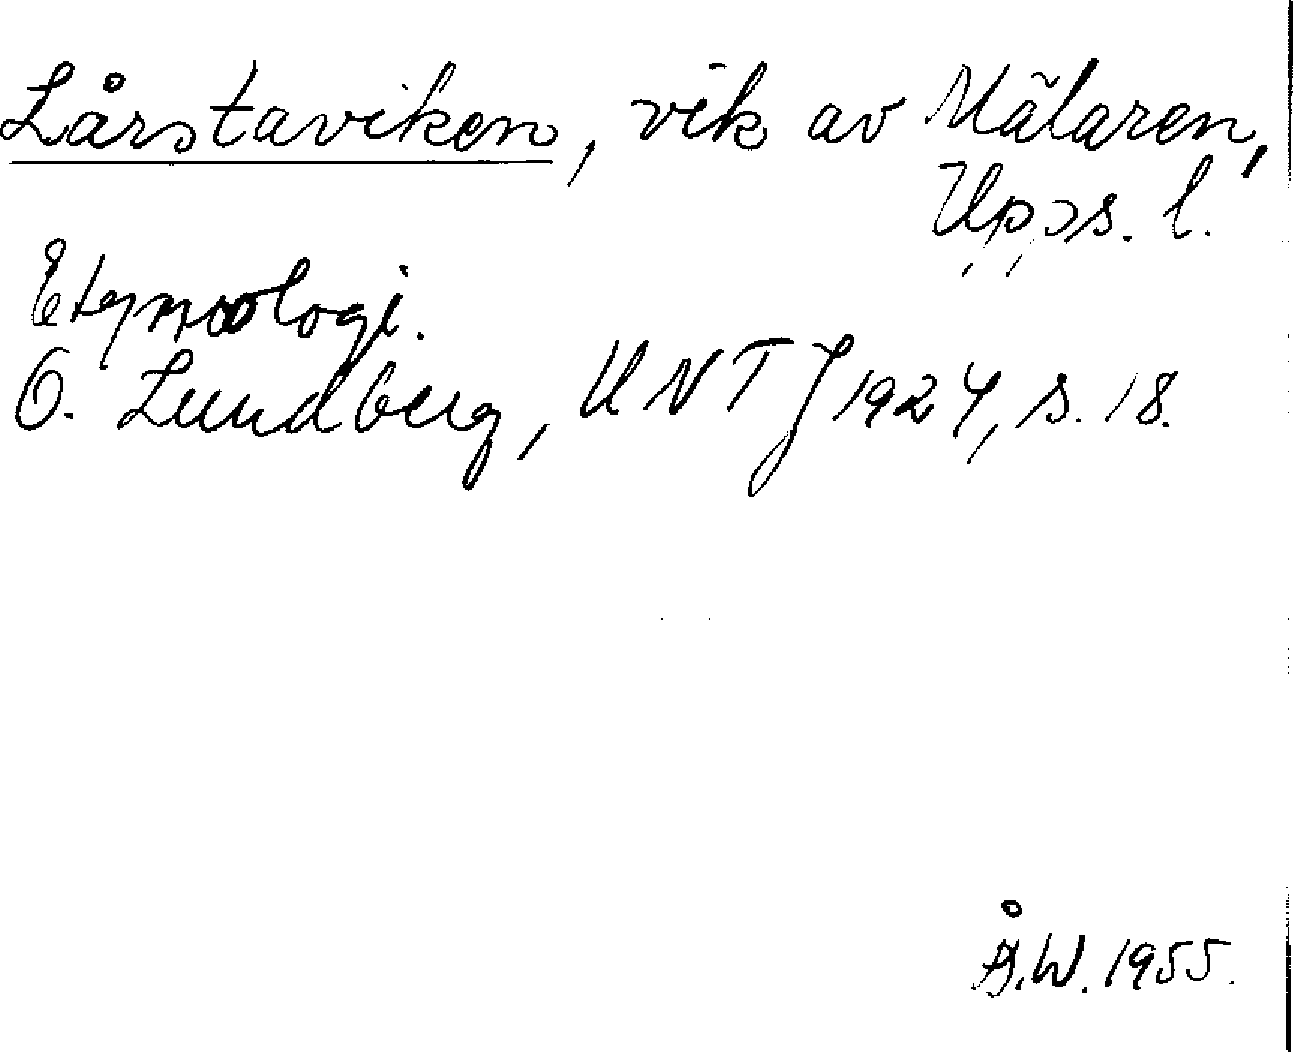 Lårstaviken, vik av Mälaren,
Upps. l.
Etymologi.
O. Lundberg, UNTJ 1924, s. 18.
Å.W. 1955.